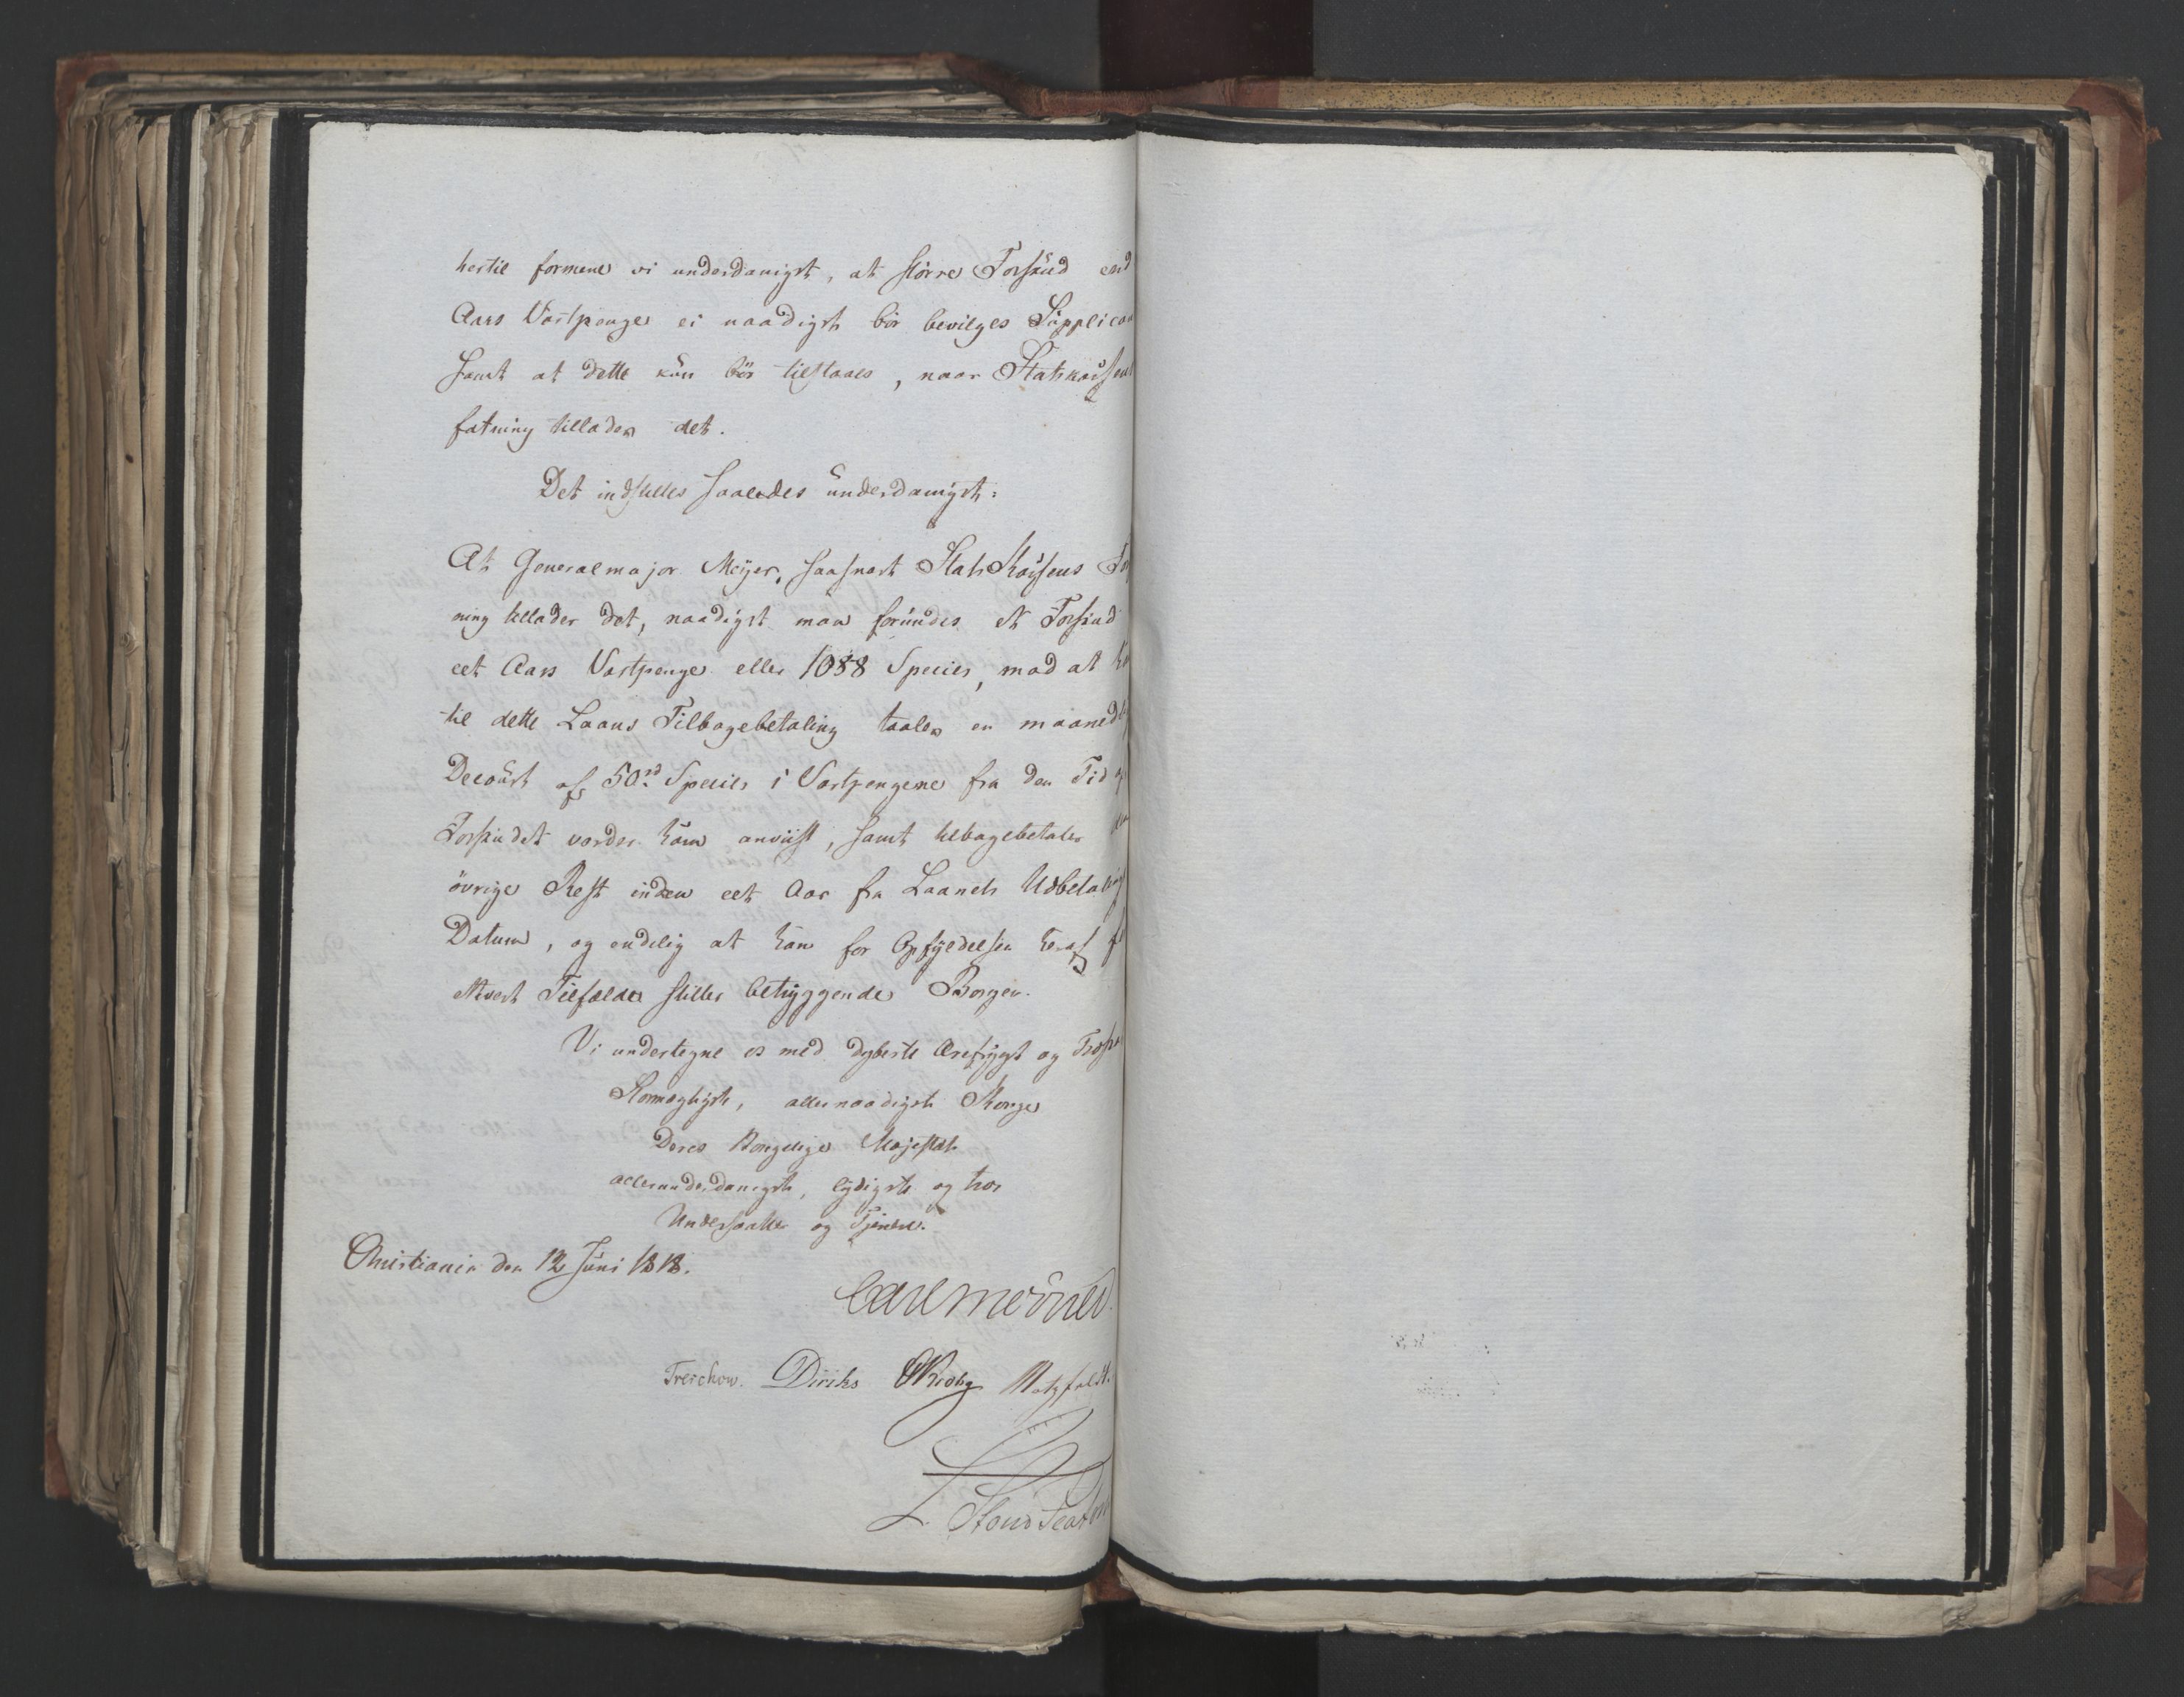 hertil formene vi underdanigst, at större Forskud end
Aars Vartpenge ei naadigst bör bevilges Supplican
samt at dette kun bör tilstaaes, naar Statskassens
fatning tillader det.
Det indstilles saaledes underdanigst:
At Generalmajor Meÿer, saasnart Stats Kassens
ning tillader det, naadigst maa forundes et Forskud
eet Aars Vartpenge eller 1088 Species, mod at
til dette Laans Tilbagebetaling taaler en maanedl
Decourt af 50rd Species i Vartpengene fra den Tid
Forskudet vorder ham anviist, samt tilbagebetaler
övrige Rest inden eet Aar fra Laanets Udbetalings
Datum, og endelig at han for Opfÿldelsen heraf
ethvert Tilfælde stiller betryggende Borgen.
Vi undertegne os med dybeste Ærefrygt og Troska
Stormægtigste, allernaadigste Konge
Deres Kongelige Majestæts
allerunderdanigste, lydigste og troe
Undersaatter og Tjenere.
Christiania den 12 Juni 1818.
Carl Mörner.
Treschow. Diriks Krohg Motzfeldt.
Holst